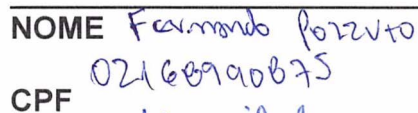 NOME Fernando Pozzuto
02168990875
CPF